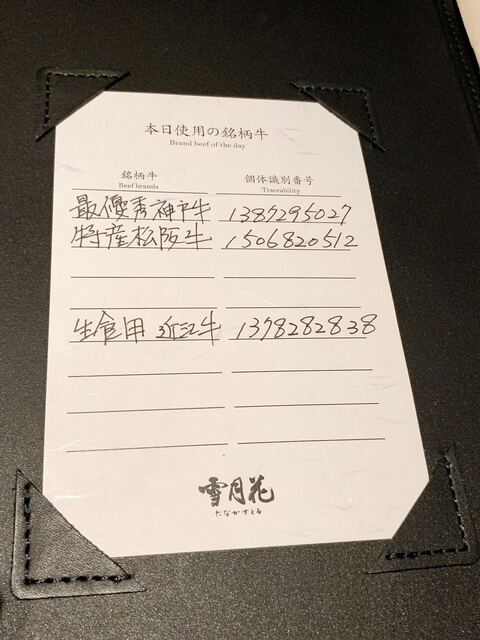 本日使用の銘柄牛
Brand beef of the day
銘柄牛 個体識別番号
Beef brands Traceability
最優秀神戸牛 1387295027
特産松阪牛 1506820512
生食用 近江牛 1378282838
雪月花
たなかさとる